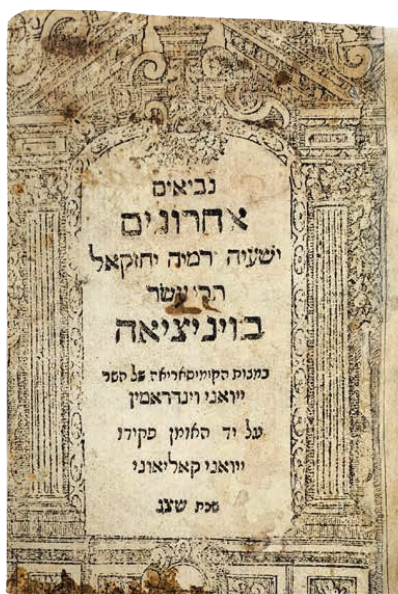 נביאים
אחרונים
ישעיה ירמיה יחזקאל
תרי עשר
בויניציאה
במצות הקומיסאריאה של השר
זיואני וינדראמין
על יד האומן פקידו
זיואני קאליאוני
שנת שצג